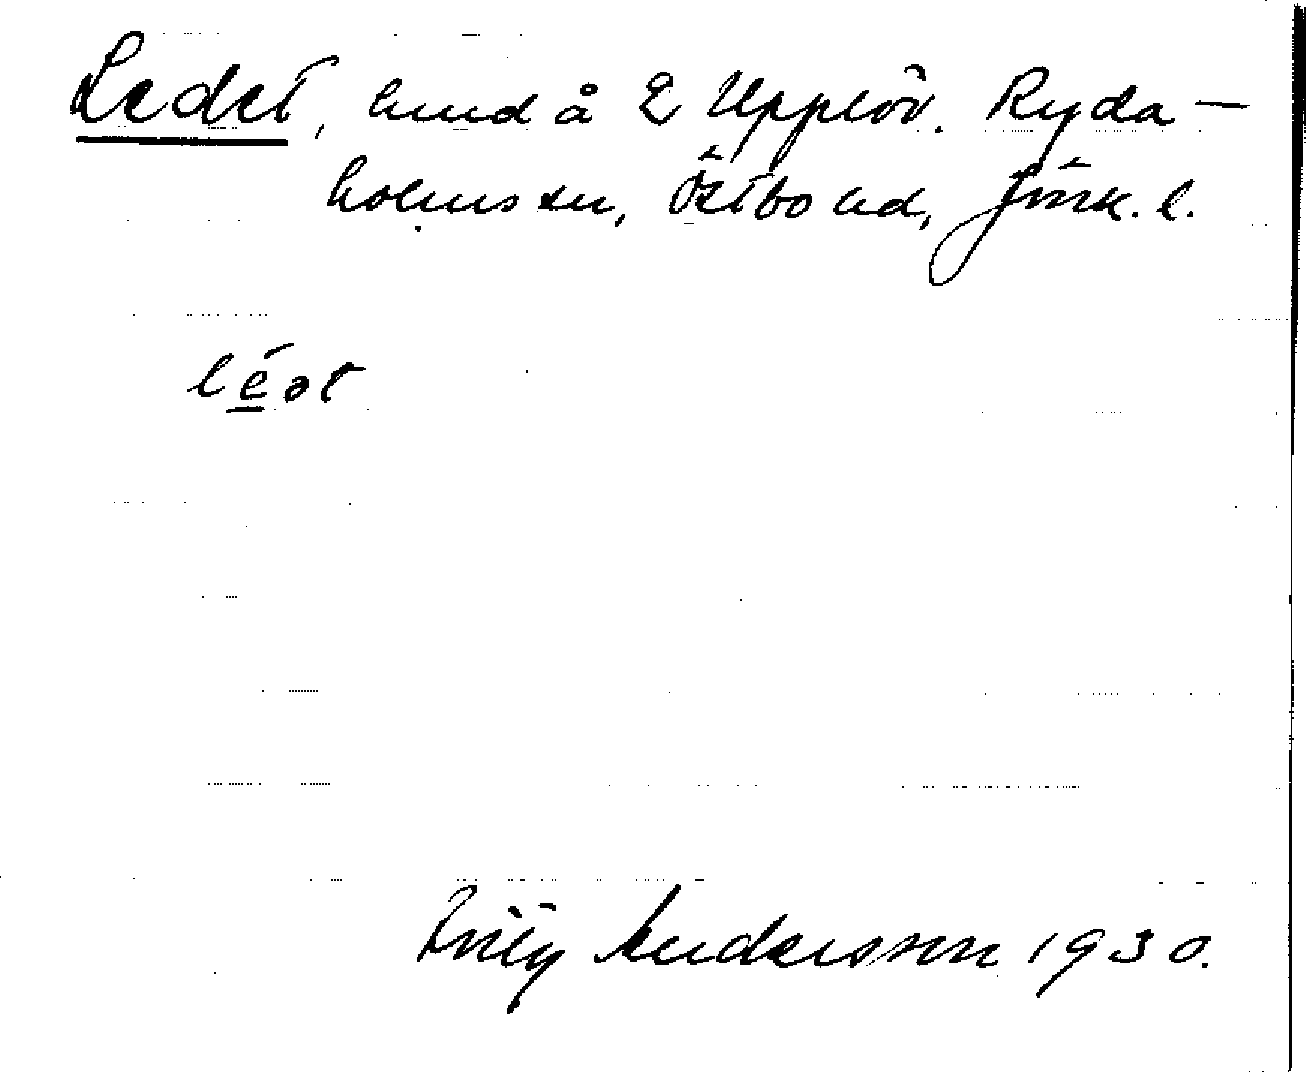 Ledet, hmd å 2 Upplöv. Ryda-
holms sn, Östbo hd, Jönk. l.
léət
Andersson 1930.